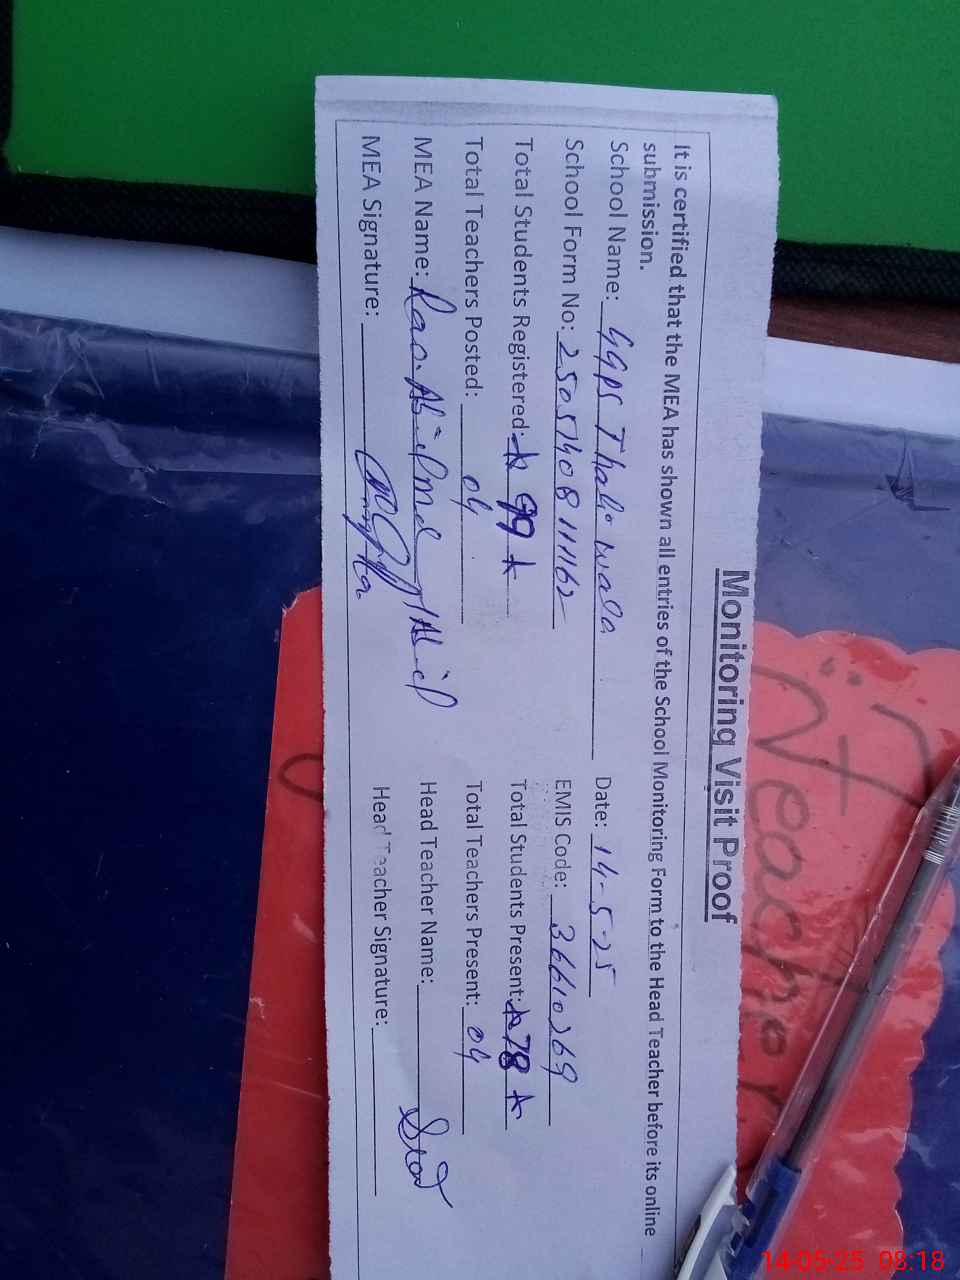 Monitoring Visit Proof
It is certified that the MEA has shown all entries of the School Monitoring Form to the Head Teacher before its online
submission.
School Name: GGPS Thali wala Date: 14-5-25
School Form No: 2505140811162 EMIS Code: 36610269
Total Students Registered: 99 Total Students Present: 78
Total Teachers Posted: 04 Total Teachers Present: 04
MEA Name: Rao. Head Teacher Name:
MEA Signature: Head Teacher Signature:
Teacher
14-05-25 08:18